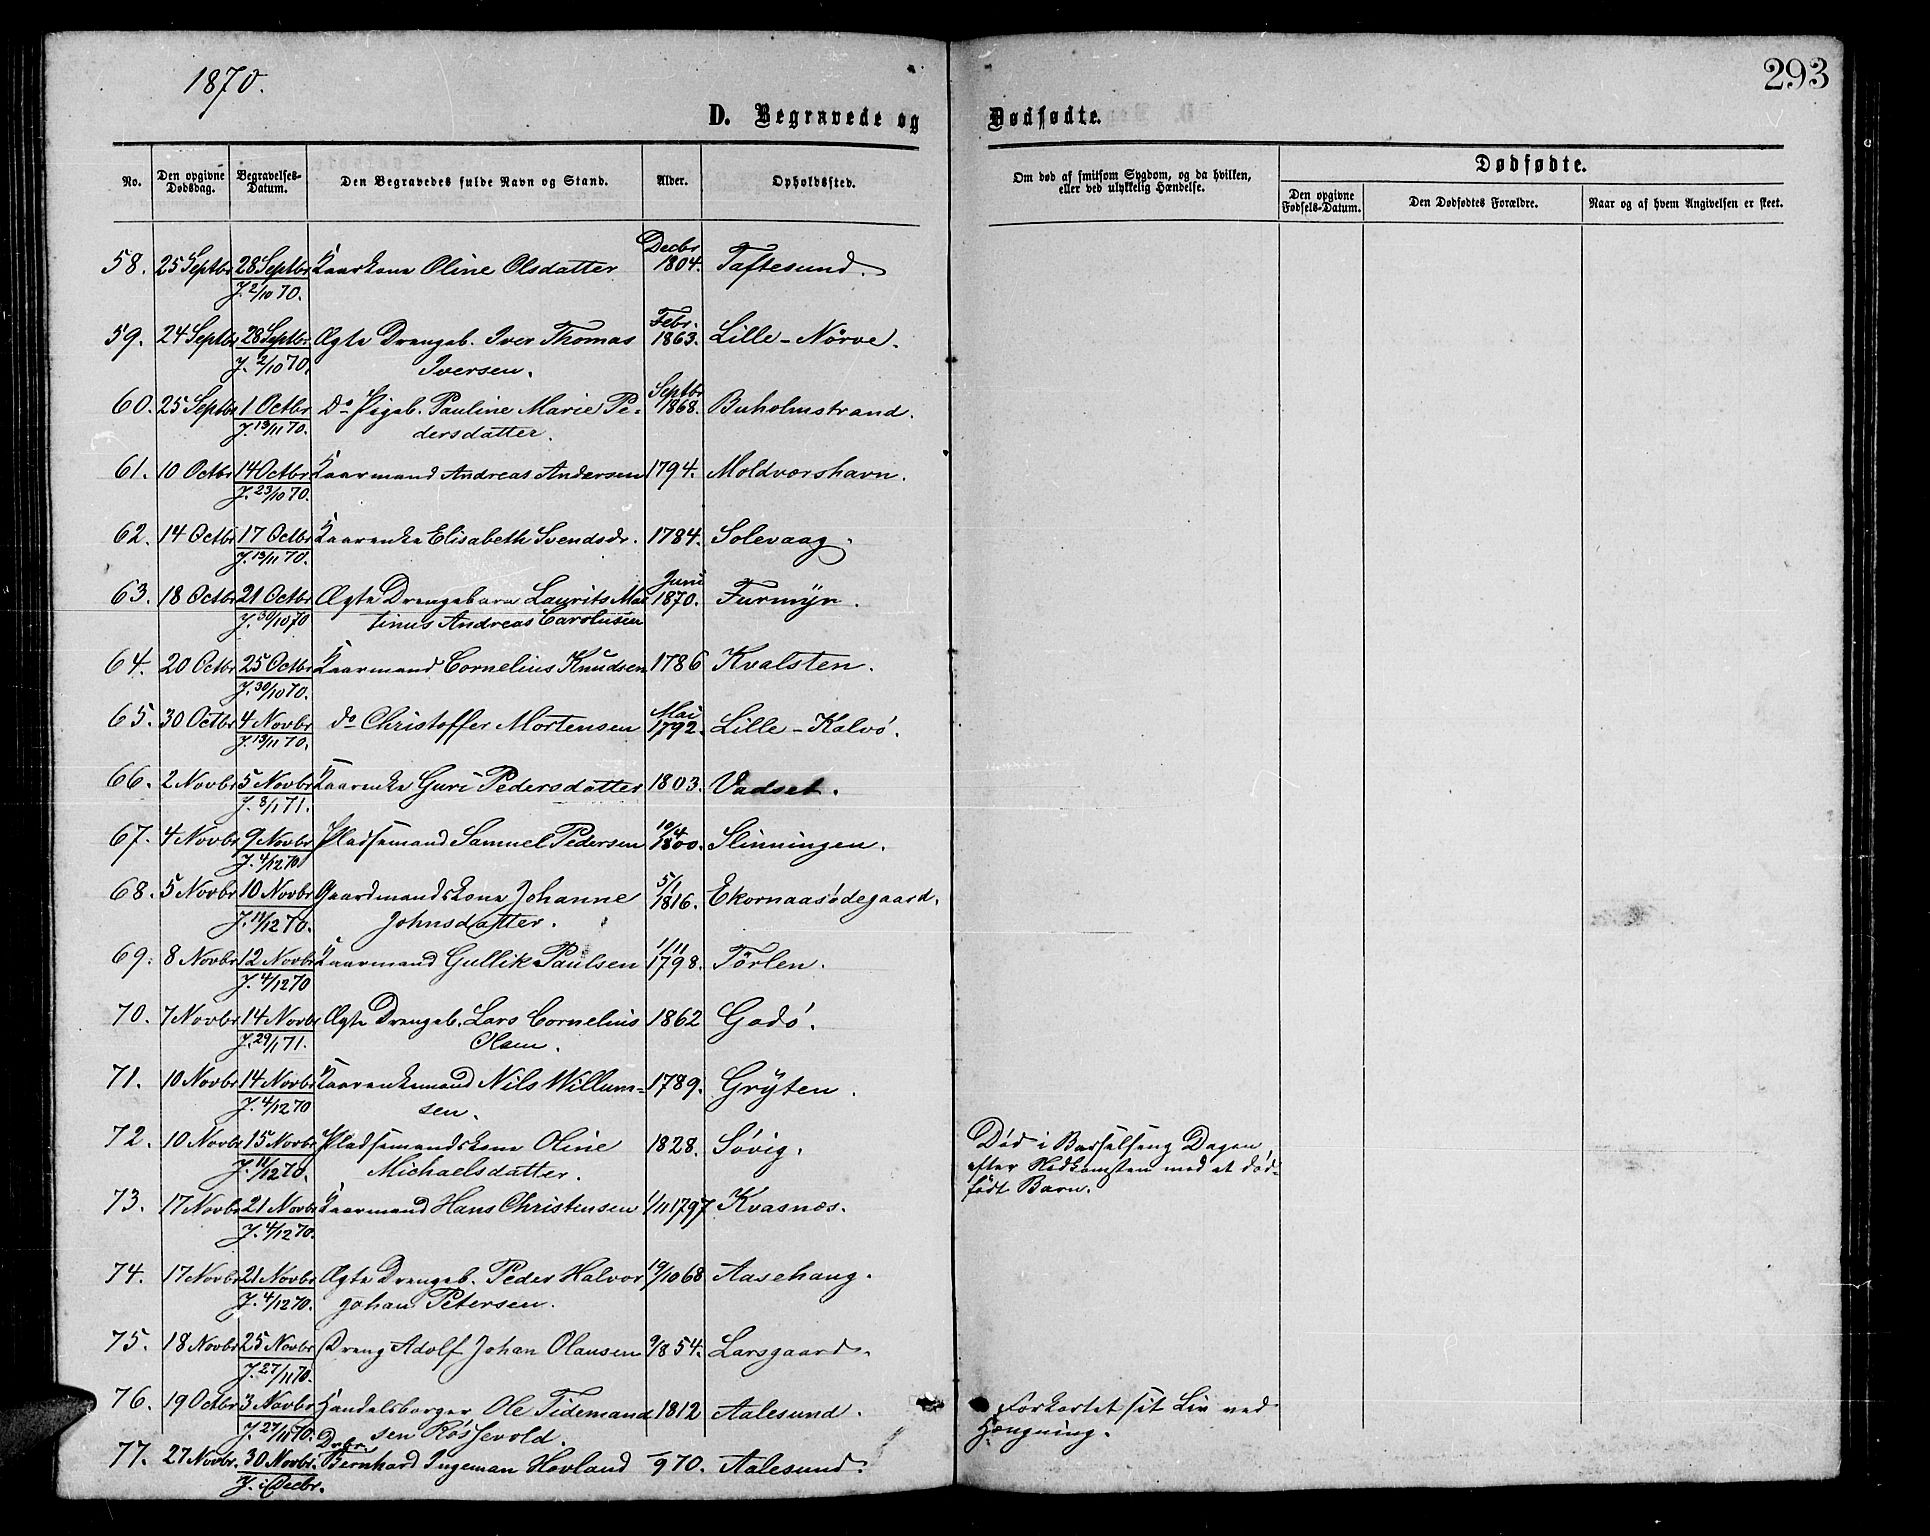 1870.
293
D. Begravede og Dødfødte.
No.
Den opgivne Dødsdag.
Begravelses-Datum.
Den Begravedes fulde Navn og Stand.
Alder.
Opholdssted.
Om død af smitsom Sygdom, og da hvilken,
eller ved ulykkelig Hændelse.
Dødfødte.
Den opgivne Fødsels-Datum.
Den Dødfødtes Forældre.
Naar og af hvem Angivelsen er skeet.
58. 25 Septbr 28 Septbr Kaarkone Oline Olsdatter Decbr 1804. Taftesund.
J. 2/10 70.
59. 24 Septbr 28 Septbr Ægte Drengeb. Iver Thomas Febr. 1863. Lille-Nørve.
J. 2/10 70. Iversen.
60. 25 Septbr 1 Octbr Do Pigeb. Pauline Marie Pe- Septbr 1868. Buholmstrand.
J. 13/11 70. dersdatter.
61. 10 Octbr 14 Octbr Kaarmand Andreas Andersen 1794. Moldværshavn.
J. 23/10 70.
62. 14 Octbr 17 Octbr Kaarenke Elisabeth Svendsdr. 1784. Solevaag.
J. 13/11 70.
63. 18 Octbr 21 Octbr Ægte Drengebarn Laurits Mar Juni 1870. Furmyr.
J. 30/10 70 tinus Andreas Carolusen
64. 20 Octbr 25 Octbr Kaarmand Cornelius Knudsen 1786 Kvalsten.
J. 30/10 70.
65. 30 Octbr 4 Novbr do Christoffer Mortensen Mai 1792. Lille-Kalvø.
J. 13/11 70.
66. 2 Novbr 5 Novbr Kaarenke Guri Pedersdatter 1803. Vadset.
J. 8/1 71.
67. 4 Novbr 9 Novbr Pladsemand Samuel Pedersen 10/4 1800. Slinningen.
J. 4/12 70
68. 5 Novbr 10 Novbr Gaardmandskone Johanne 5/1 1816. Ekornaasødegaard.
J. 11/12 70. Johnsdatter.
69. 8 Novbr 12 Novbr Kaarmand Gullik Paulsen 1/11 1798. Tørlen.
J. 4/12 70
70. 7 Novbr 14 Novbr Ægte Drengeb. Lars Cornelius 1862 Godø.
J. 29/1 71. Olsen.
71. 10 Novbr 14 Novbr Kaarenkemand Nils Willum- 1789. Gryten.
J. 4/12 70 sen.
72. 10 Novbr 15 Novbr Pladsemandskone Oline 1828. Søvig. Død i Barselseng Dagen
J. 11/12 70. Michaelsdatter. efter Nedkomsten med et død-
født Barn.
73. 17 Novbr 21 Novbr Kaarmand Hans Christensen 1/11 1797 Kvasnæs.
J. 4/12 70.
74. 17 Novbr 21 Novbr Ægte Drengeb. Peder Halvor 19/10 68 Aasehaug.
J. 4/12 70. Johan Petersen.
75. 18 Novbr 25 Novbr Dreng Adolf Johan Olausen 9/8 54. Larsgaard.
J. 27/11 70.
76. 19 Octbr 3 Novbr Handelsborger Ole Tidemand 1812 Aalesund. Forkortet sit Liv ved
J. 27/11 70. sen Røssevold. Hængning.
77. 27 Novbr. 30 Novbr. Drgb. Bernhard Ingeman Hovland /9 70. Aalesund.
J. i Decbr.